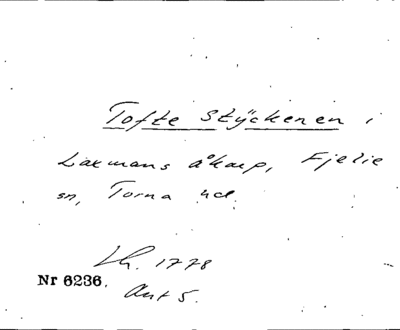 Tofte Stÿckenen i
Laxmans åkarp, Fjelie
sn, Torna hd.
Lh. 1778
Nr 6236.
Akt 5.